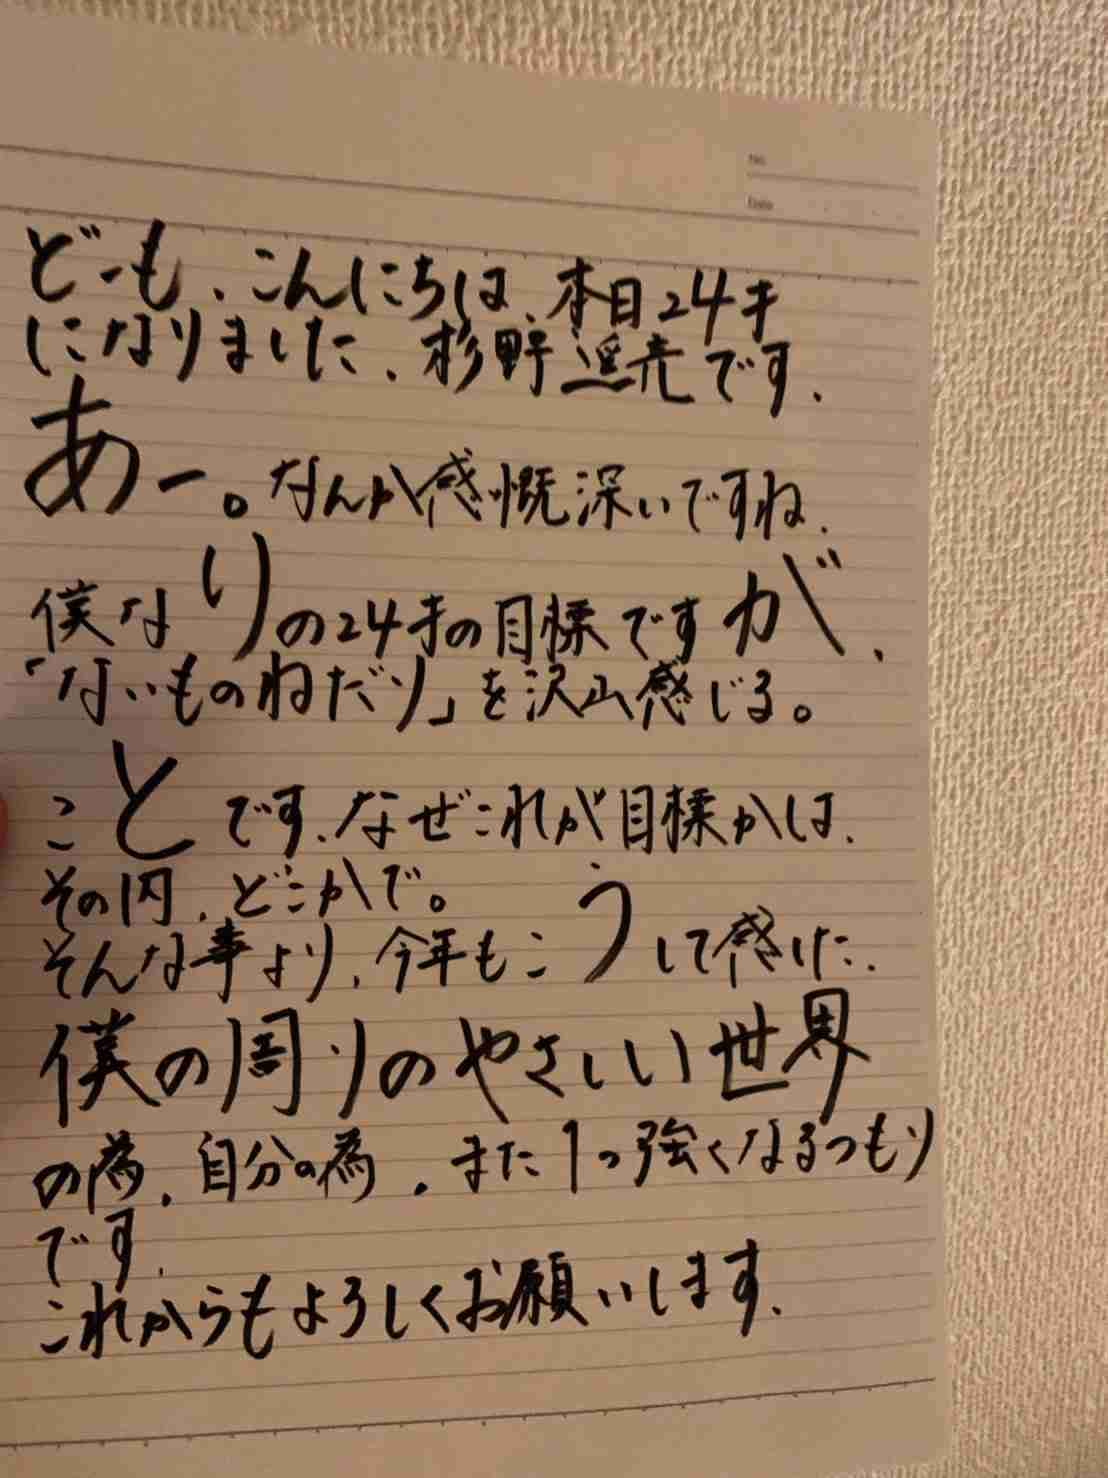 No.
Date
どーも、こんにちは、本日24才
になりました、杉野遥亮です.
あー。なんか感慨深いですね.
僕なりの24才の目標ですが、
「ないものねだり」を沢山感じる。
ことです、なぜこれが目標かは、
その内、どこかで。
そんな事より、今年もこうして感じた、
僕の周りのやさしい世界
の為、自分の為、また1つ強くなるつもり
です、
これからもよろしくお願いします、